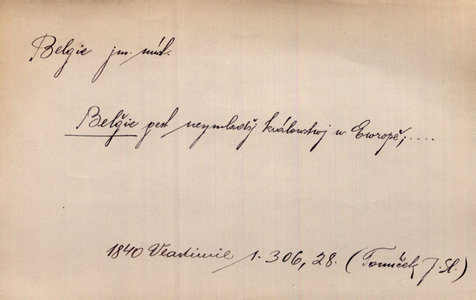 Belgie jm. míst.
Belgie gest neymladšj králowstwj w Ewropě; ....
1840 Vlastimil 1. 306, 28. (Tomíček J. Sl.)